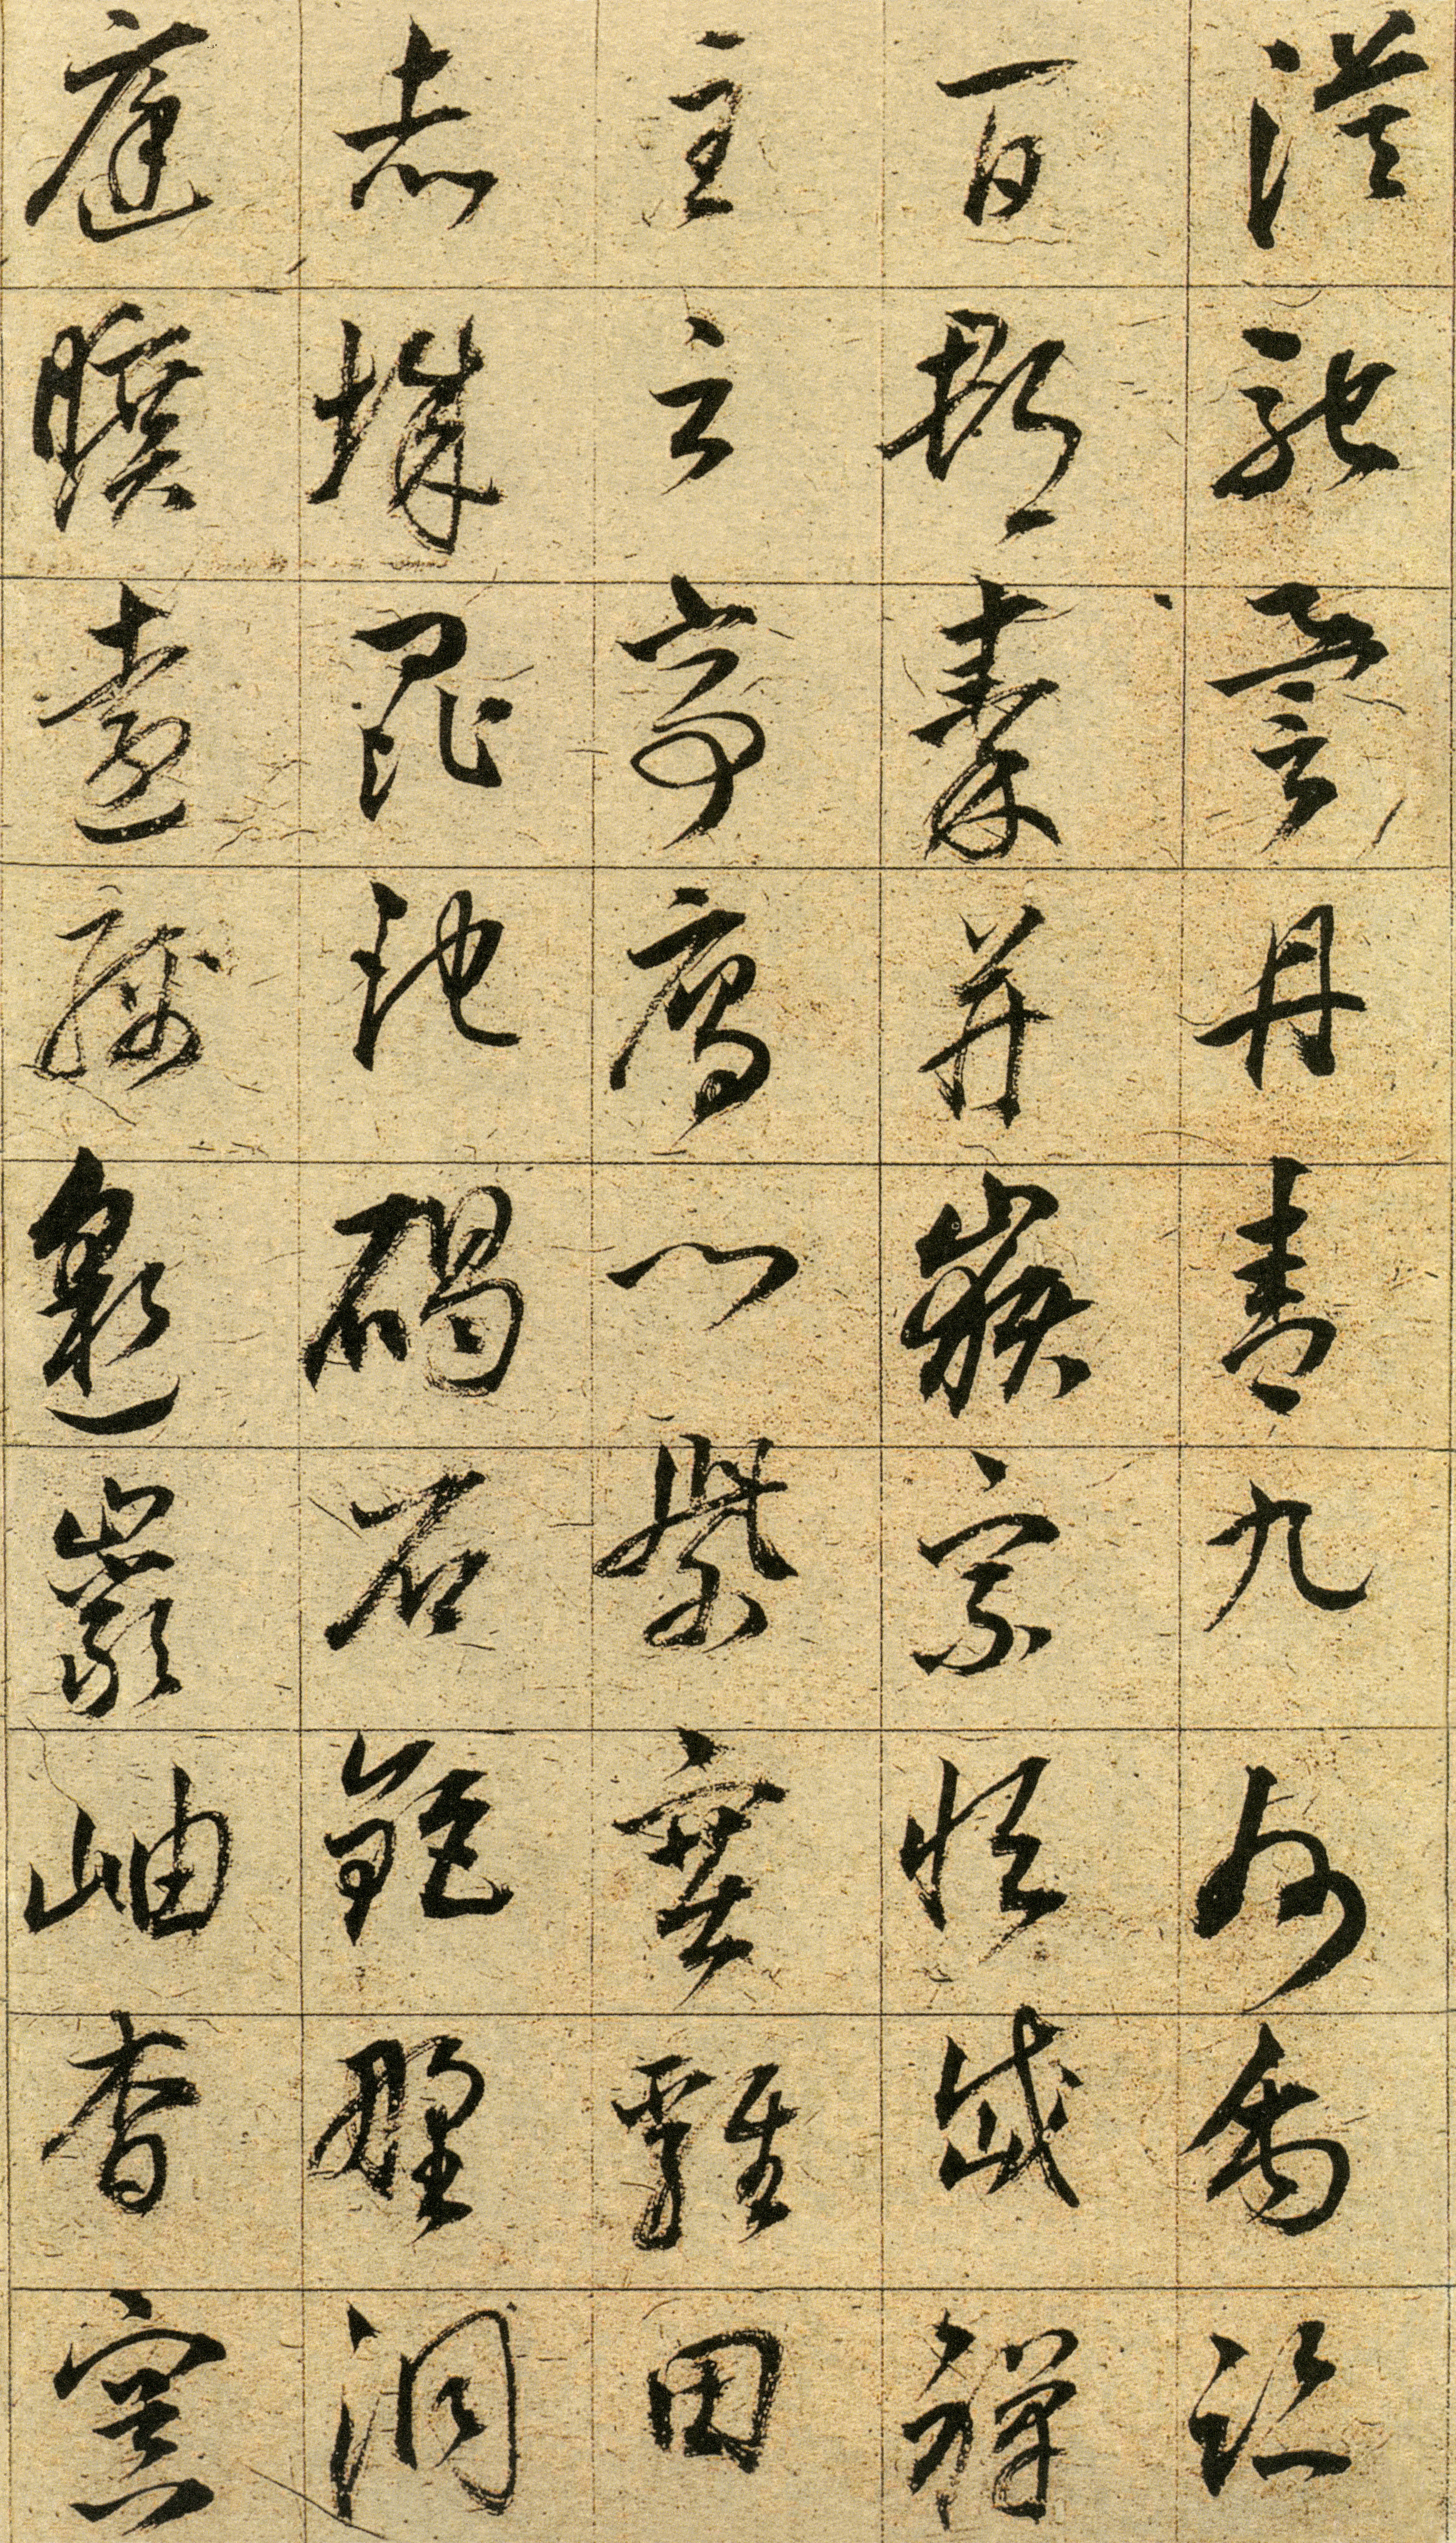 漠馳譽丹青九州禹跡
百郡秦并嶽宗恒岱禪
主云亭雁門紫塞雞田
赤城昆池碣石鉅野洞
庭曠遠緜邈巖岫杳冥